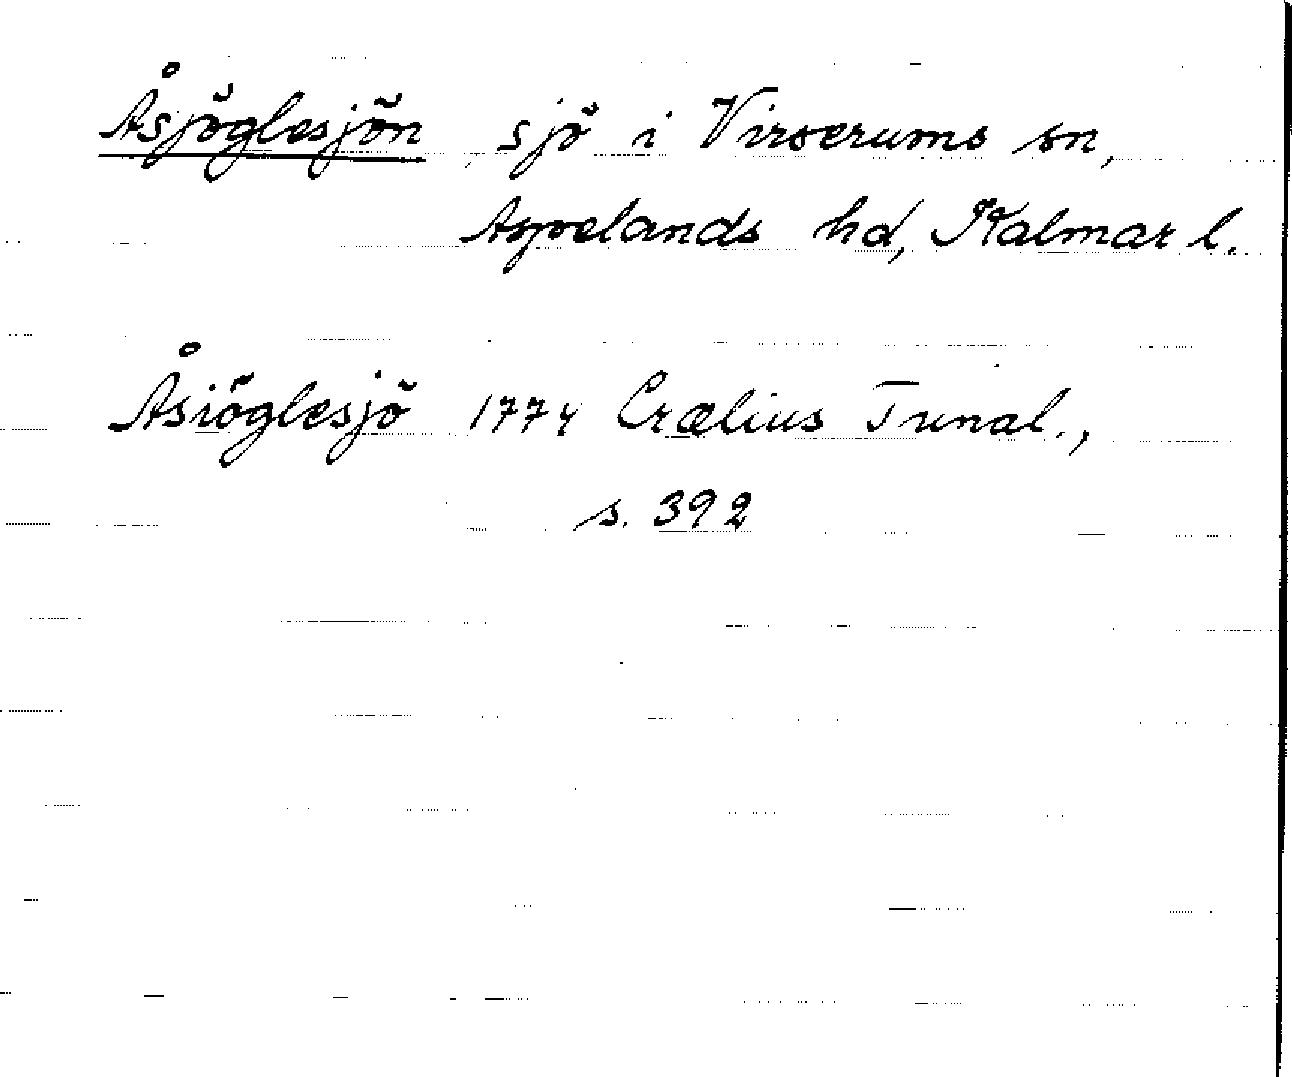 Åsjöglesjön, sjö i Virserums sn,
Aspelands hd, Kalmar l.
Åsiöglesjö 1774 Crælius Tunal.,
s. 392